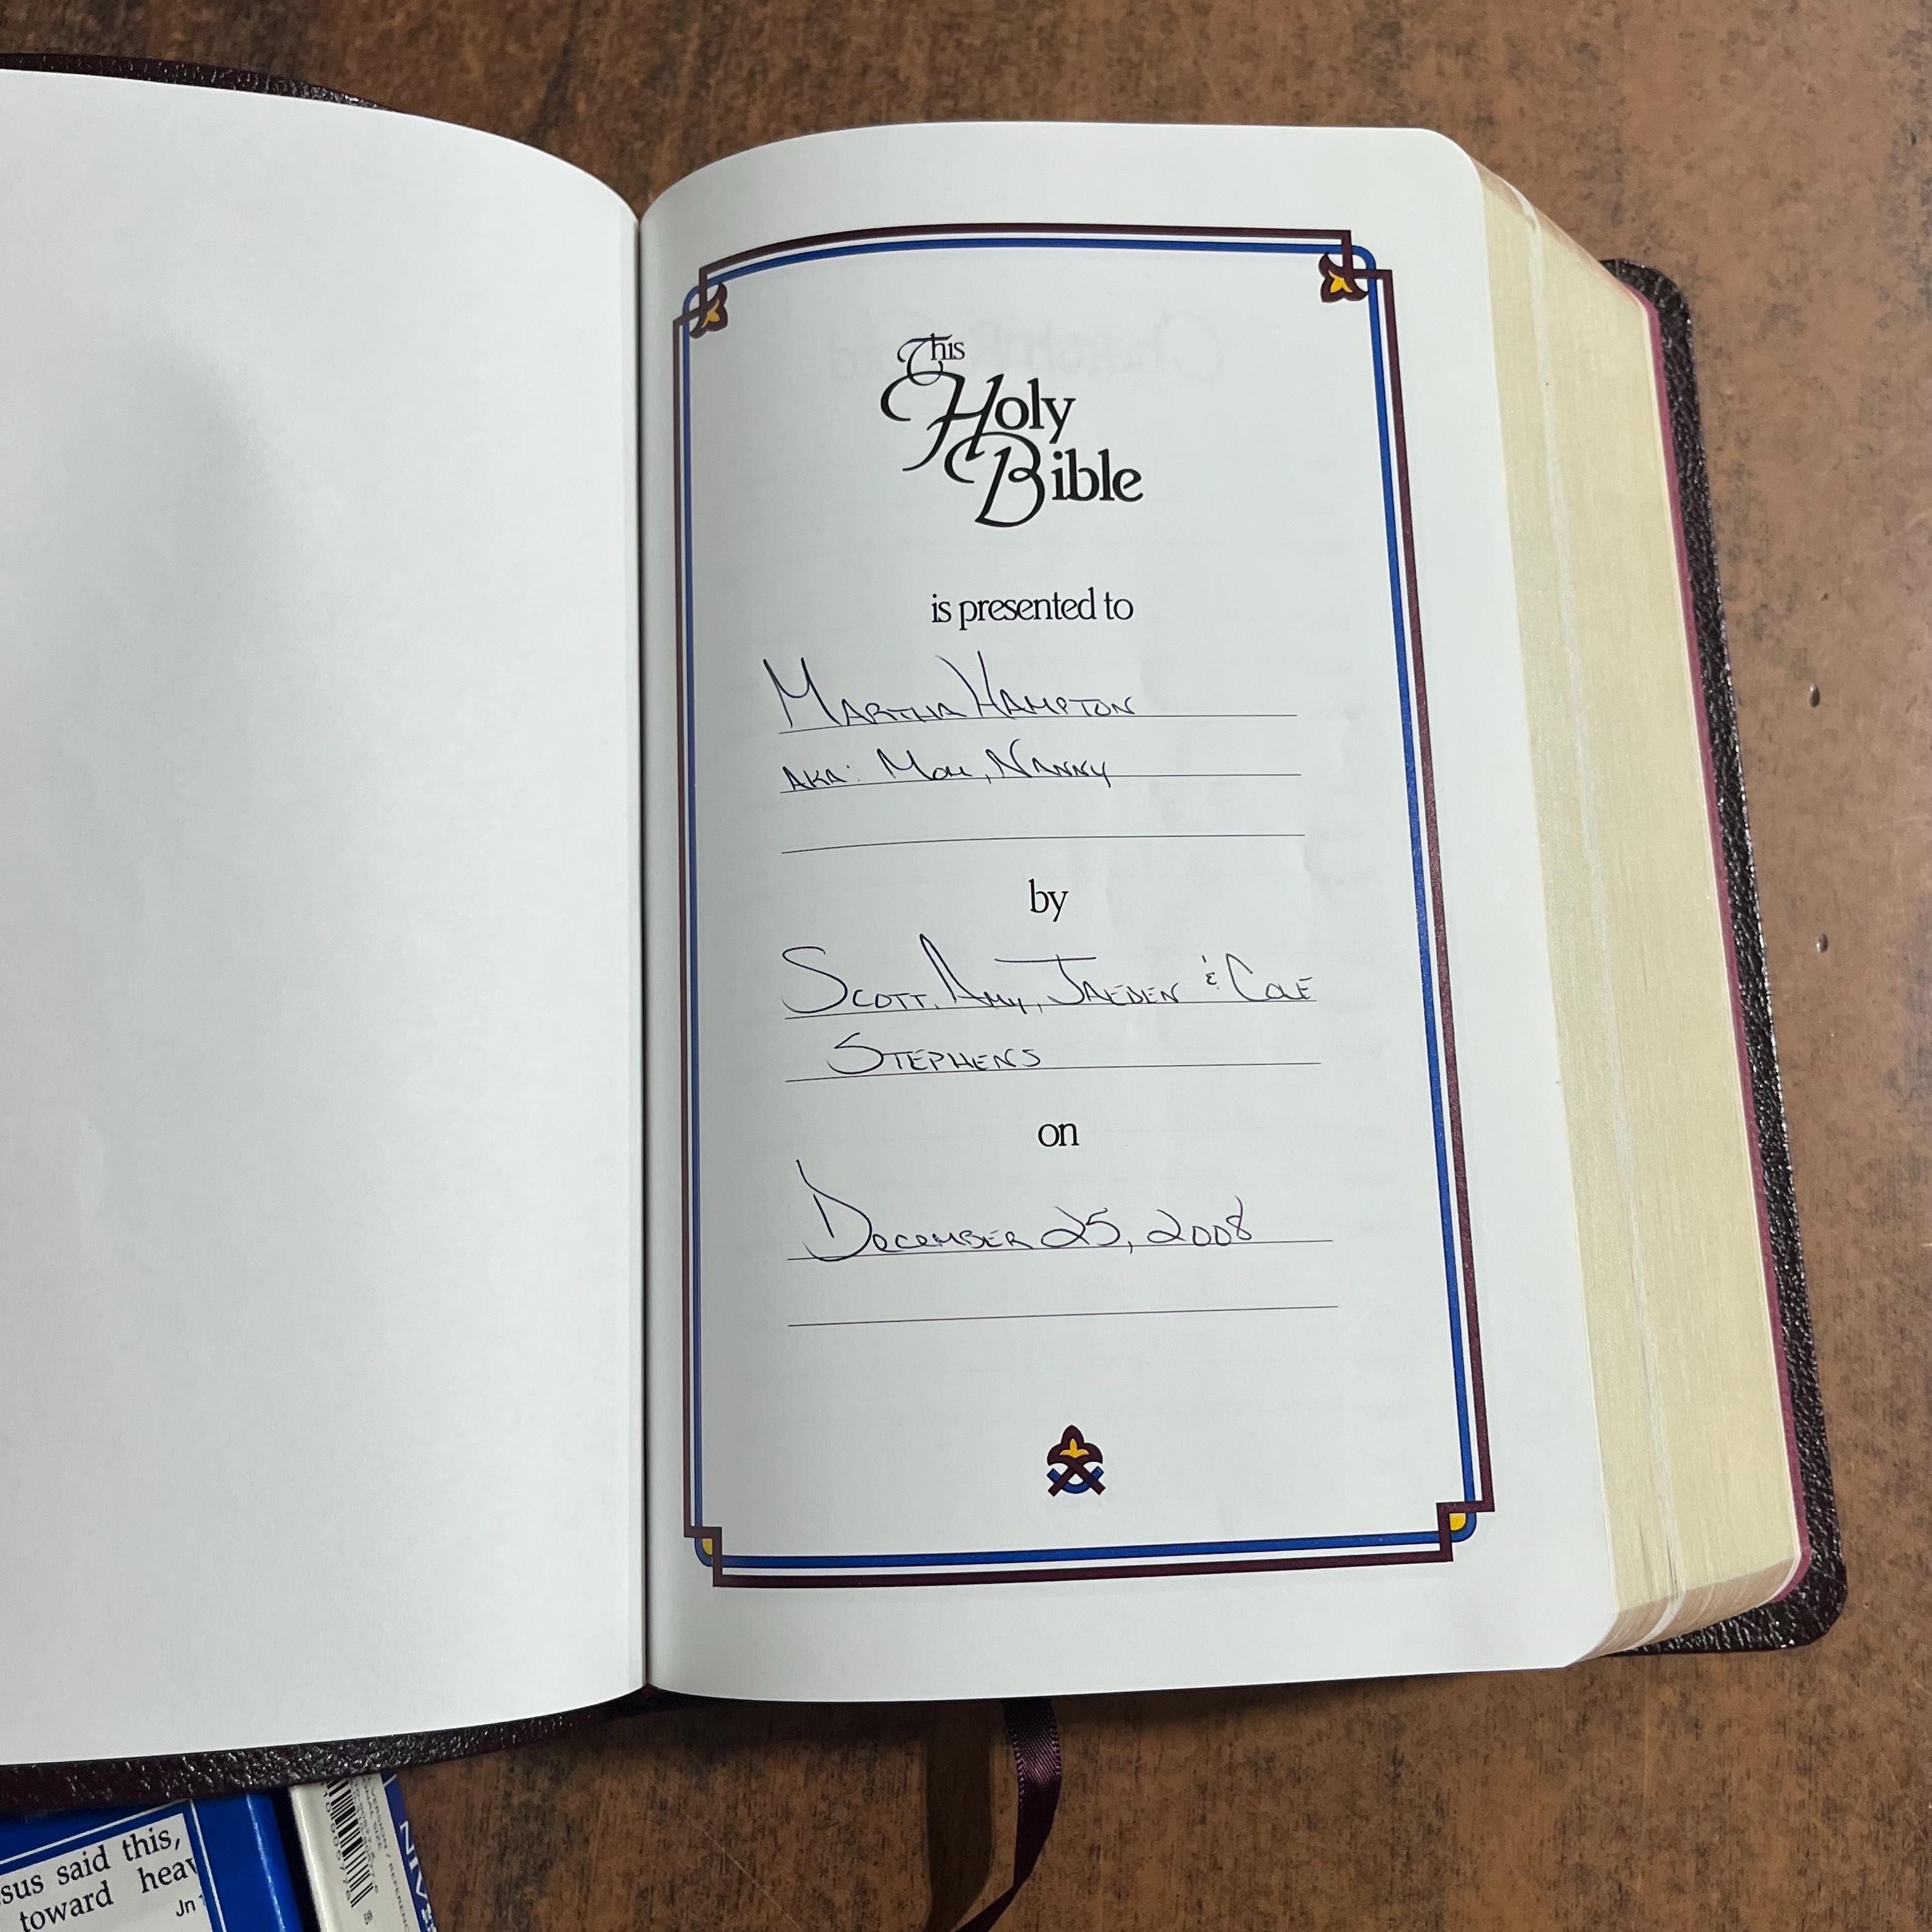 This
Holy
Bible
is presented to
MARTHA HAMPTON
AKA: MOM, NANNY
by
SCOTT, AMY, JAEDEN & COLE
STEPHENS
on
DECEMBER 25, 2008
sus said this,
toward heav
Jn
NIV